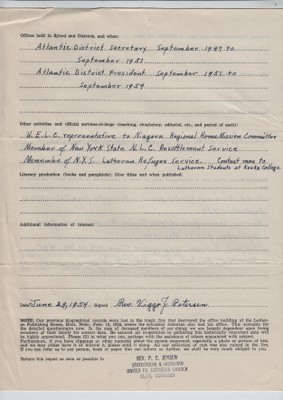 Offices held in Synod and Districts, and when:
Atlantic District Secretary September 1947 to
September 1951
Atlantic District President September 1951 to
September 1954
Other activities and official services—at-large (teaching, chaplaincy, editorial, etc., and period of each):
U.E.L.C. representative to Niagara Regional Home Mission Committee
Member of New York State N.L.C. Resettlement Service
Member of N.Y.S. Lutheran Refugee Service. Contact man to
Lutheran Students at Keuka College.
Literary production (books and pamphlets): Give titles and when published.
Additional information of interest:
Date June 29, 1954 Signed Rev. Viggo J. Petersen
NOTE: Our previous biographical records were lost in the tragic fire that destroyed the office building of the Lutheran
Publishing House, Blair,
the detailed questionnaire now. In the case of deceased members of our clergy we are largely dependent upon living
members of their family for correct data. We entreat all
be highly appreciated. Please fill in what you can, perhaps with the assistance of others acquainted with subject.
Furthermore, if you have clippings or other material about the person concerned, especially a photo or picture of him,
and no may either have it or borrow it, please send it along. All
If you can refer us to any person, book or paper that can inform us further, we shall be very much obliged to you.
Return this report as soon as possible to
REV. P. C. JENSEN
STATISTICIAN &
UNITED EV. LUTHERAN CHURCH
BLAIR, NEBRASKA